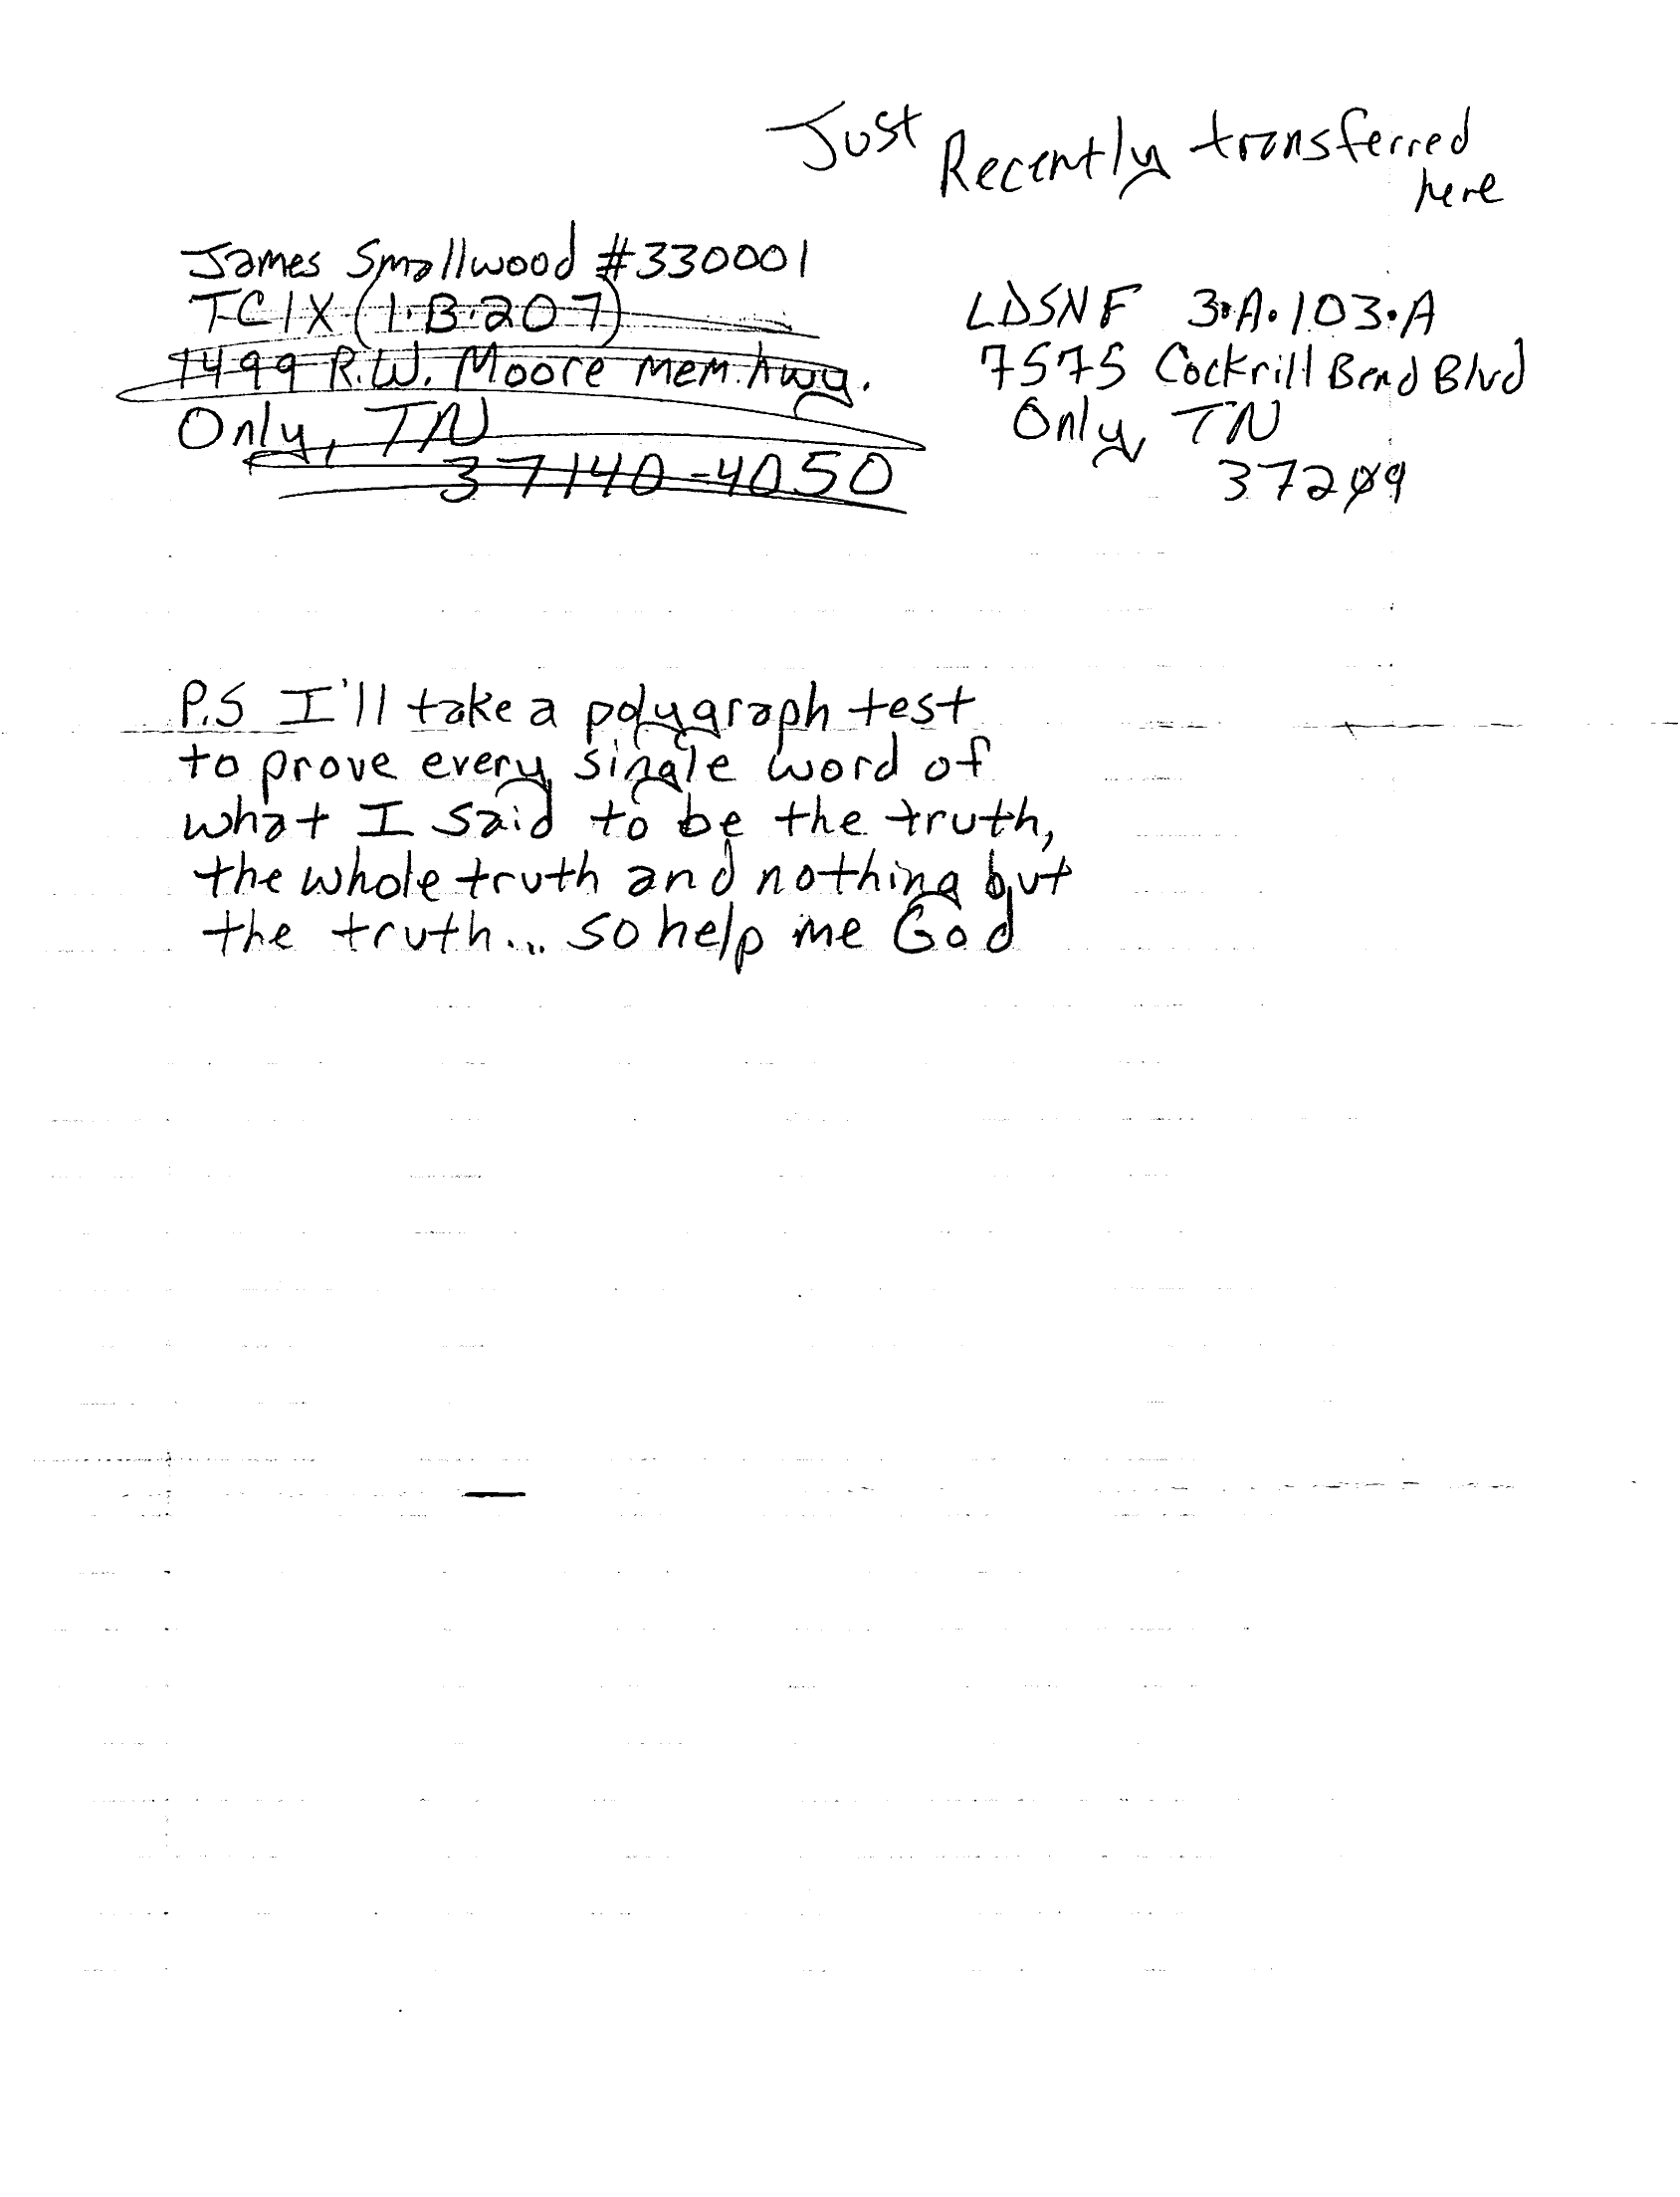 Just Recently transferred
here
James Smallwood #330001
TCIX (1.B.207)
1499 R.W. Moore Mem. hwy.
Only, TN
37140-4050
LDSNF 3.A.103.A
7575 Cockrill Bend Blvd
Only, TN
37209
P.S I'll take a polygraph test
to prove every single word of
what I said to be the truth,
the whole truth and nothing but
the truth... so help me God